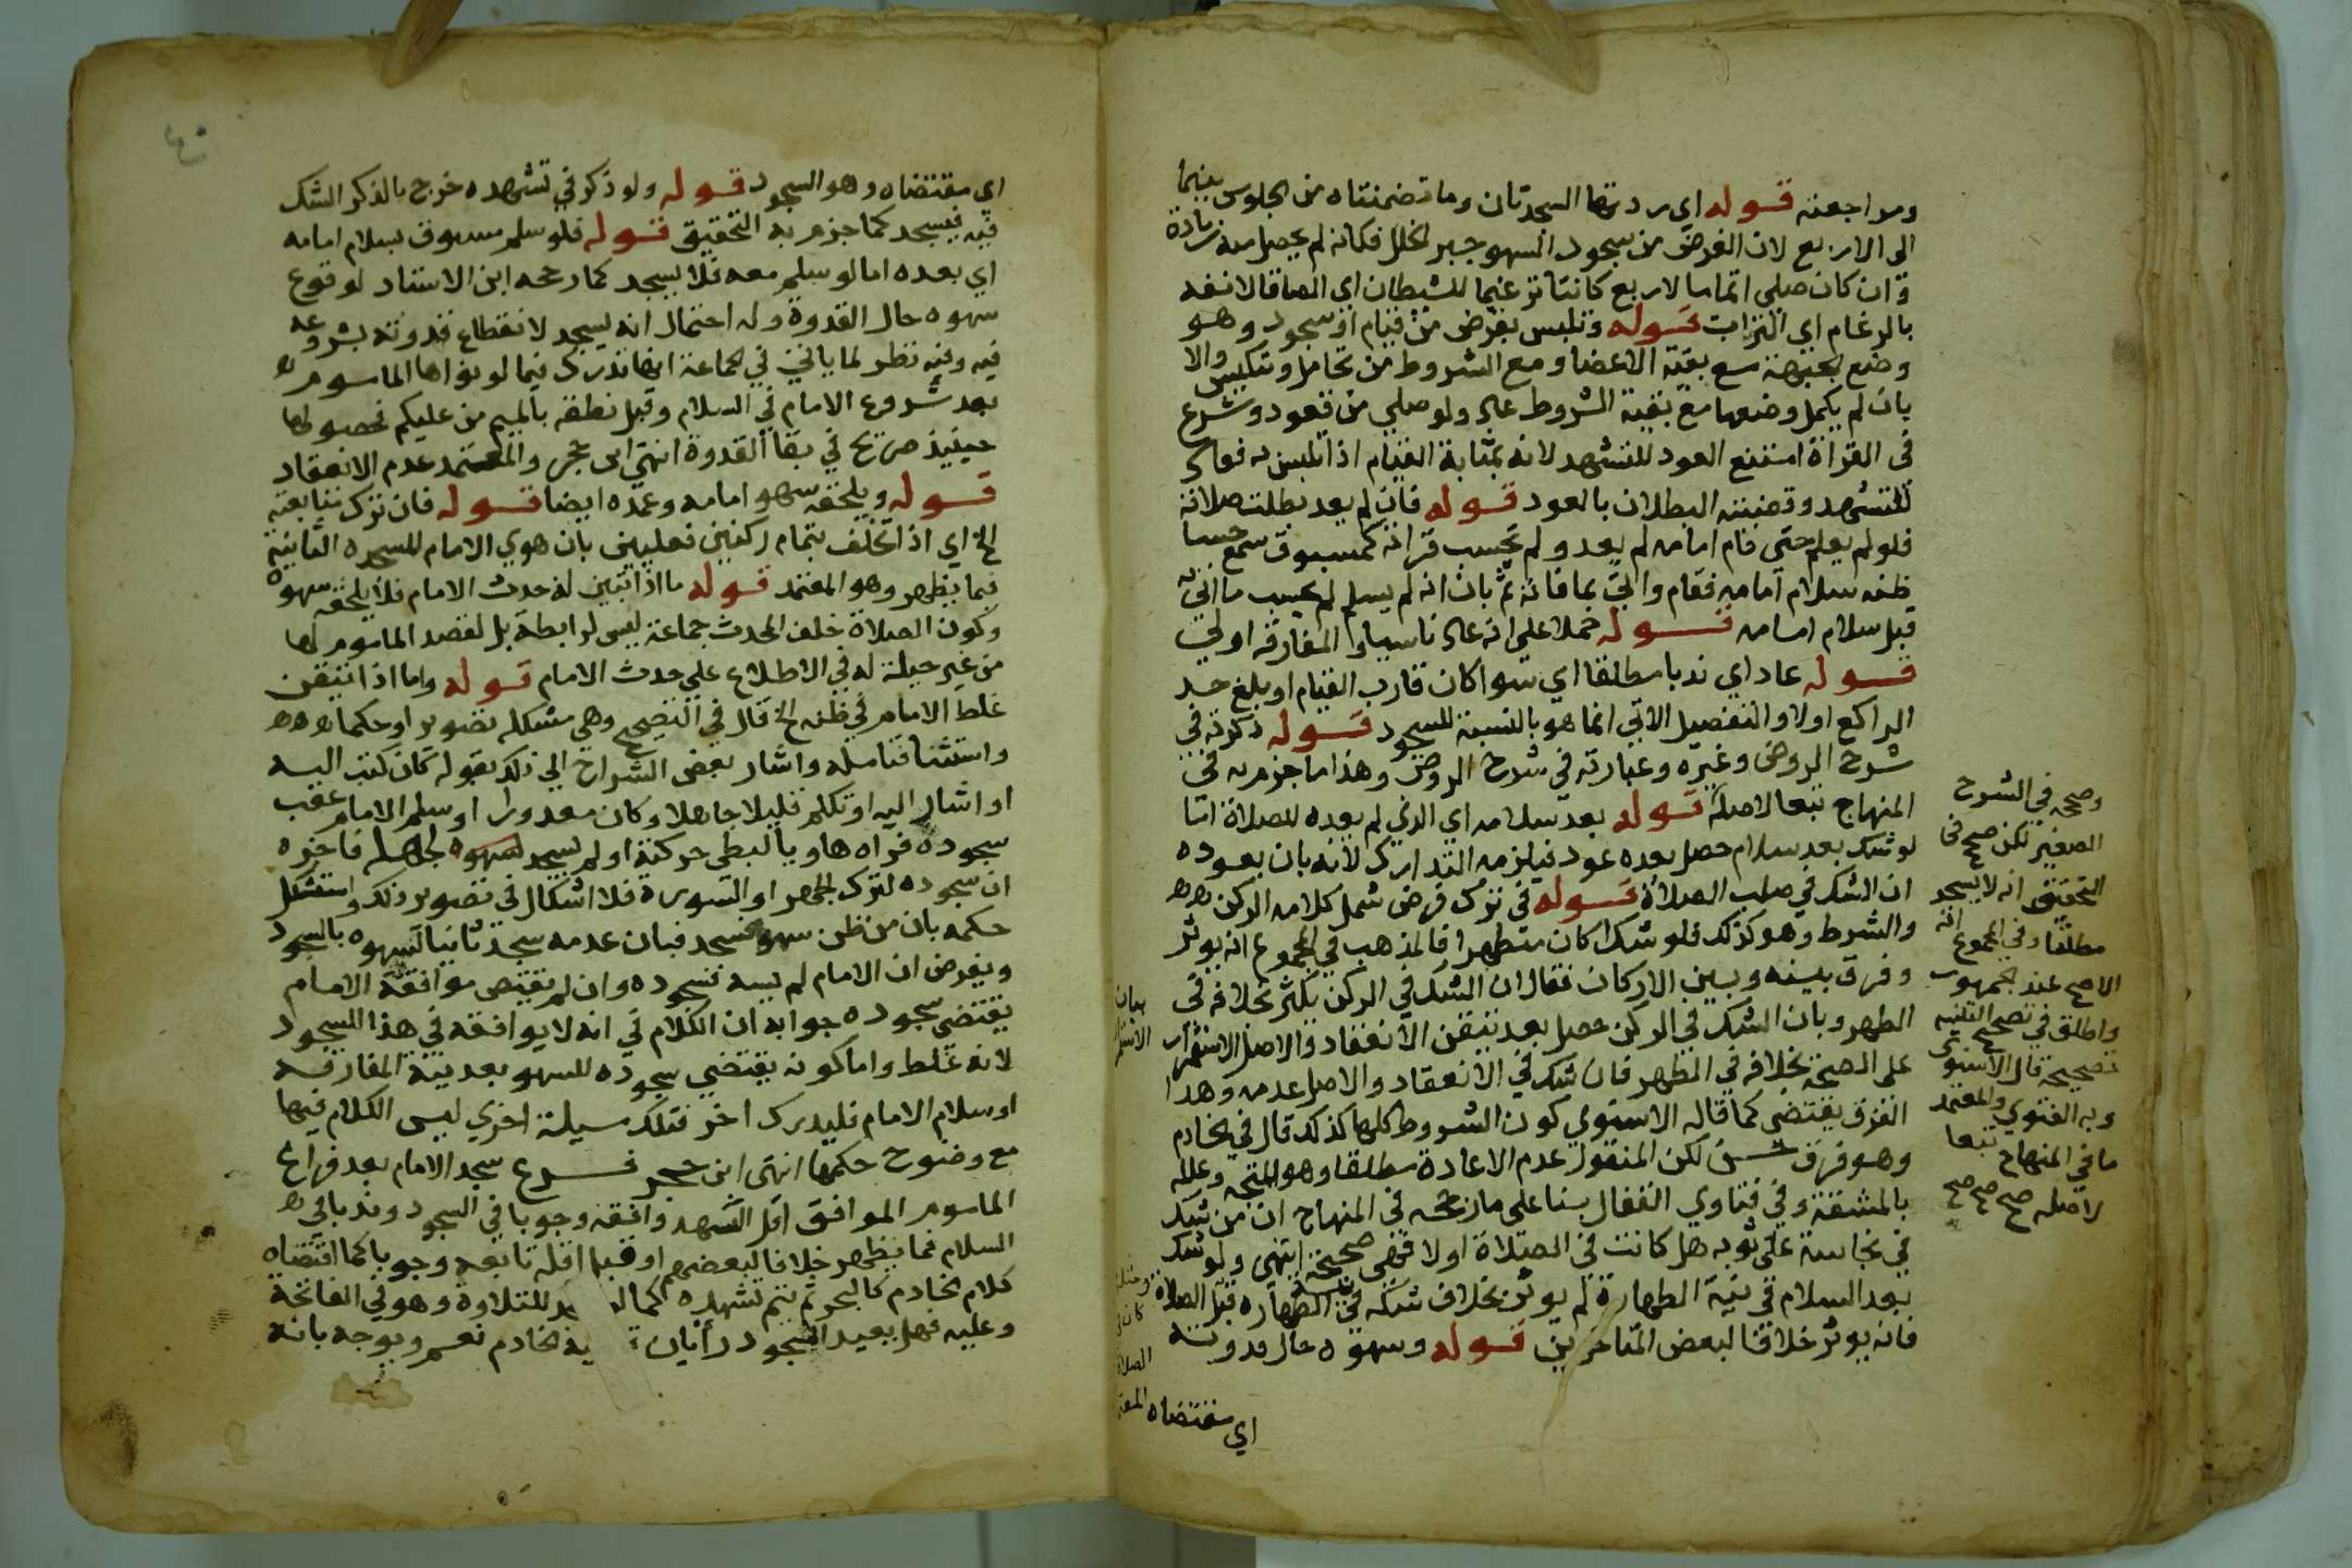 ومراجعته قوله اي ردتها السجدتان وما تضمنتاه من الجلوس بينهما
الى الاربع لان الغرض من سجود السهو جبر الخلل فكانه لم يحصل منه زيادة
وان كان صلى اتماما لاربع كانتا ترغيما للشيطان اي الصاقا لانفه
بالرغام اي التراب قوله وتلبس بفرض من قيام او سجود وهو
وضع الجبهة مع بقية الاعضا ومع الشروط من تحامل وتنكيس والا
بان لم يكمل وضعها مع بقية الشروط عاد ولو صلى من قعود وشرع
في القراة امتنع العود للتشهد لانه بمثابة القيام اذا تلبس به فعاد
للتشهد وقضيته البطلان بالعود قوله فان لم يعد بطلت صلاته
فلو لم يعلم حتى قام امامه لم يعد ولم تحسب قراته كمسبوق سمع حسا
ظنه سلام امامه فقام واتى بما فاته ثم بان انه لم يسلم لم يحسب ما اتى به
قبل سلام امامه قوله حملا على انه عاد ناسيا والمفارقة اولى
قوله عاد اي ندبا مطلقا اي سوا كان قارب القيام او بلغ حد
الراكع اولا والتفصيل الاتي انما هو بالنسبة للسجود قوله ذكرته في
شرح الروض وغيره وعبارته في شرح الروض وهذا ما جزم به في
المنهاج تبعا لاصله قوله بعد سلامه اي الذي لم يعده للصلاة اما
لو شك بعد سلام حصل بعده عود فيلزمه التدارك لانه بان بعوده
ان الشك في صلب الصلاة قوله في ترك فرض شمل كلامه الركن
والشرط وهو كذلك فلو شك اكان متطهرا فالمذهب في المجموع انه يوثر
وفرق بينه وبين الاركان فقال ان الشك في الركن يكثر بخلافه في
الطهر وبان الشك في الركن حصل بعد تيقن الانعقاد والاصل الاستمرار
على الصحة بخلافه في الطهر فان شك في الانعقاد والاصل عدمه وهذا
الفرق يقتضى كما قاله الاسنوي كون الشروط كلها كذلك قال في الخادم
وهو فرق حسن لكن المنقول عدم الاعادة مطلقا وهو المتجه وعلله
بالمشقة وفي فتاوي القفال بنا على ما رجحه في المنهاج ان من شك
في نجاسة على ثوبه هل كانت في الصلاة اولا فهي صحيحة انتهى ولو شك
بعد السلام في نية الطهارة لم يوثر بخلاف شكه في نية الطهارة قبل الصلاة
فانه يوثر خلافا لبعض المتاخرين قوله وسهوه حال قدوته
اي مقتضاه
وصححه في الشرح
الصغير لكن صحح في
التحقيق انه لا يسجد
مطلقا وفي المجموع انه
الاصح عند الجمهور
واطلق في تصحيح التنبيه
تصحيحه قال الاسنوي
وبه الفتوي والمعتمد
ما في المنهاج تبعا
لاصله صح صح صح
بيان
اي مقتضاه وهو السجود قوله ولو ذكر في تشهده خرج بالذكر الشك
فيه فيسجد كما جزم به التحقيق قوله فلو سلم مسبوق بسلام امامه
اي بعده اما لو سلم معه فلا يسجد كما رجحه ابن الاستاد لوقوع
سهوه حال القدوة وله احتمال انه يسجد لانقطاع قدوته بشروعه
فيه وفيه نظر لما ياتي في الجماعة انها تدرك فيما لو نواها الماموم
بعد شروع الامام في السلام وقبل نطقه بالميم من عليكم فحصولها
حينيذ صريح في بقا القدوة انتهى ابن حجر والمعتمد عدم الانعقاد
قوله ويلحقه سهو امامه وعمده ايضا قوله فان ترك متابعته
الخ اي اذا تخلف بتمام ركنين فعليين بان هوي الامام للسجدة الثانية
فيما يظهر وهو المعتمد قوله ما اذا تبين له حدث الامام فلا يلحقه سهوه
وكون الصلاة خلف المحدث جماعة ليس لرابطة بل لقصد الماموم لها
من غير حيلة له في الاطلاع على حدث الامام قوله واما اذا تيقن
غلط الامام في ظنه الخ قال في التصحيح وهي مشكله تصويرا وحكما
واستثنا فتامله واشار بعض الشراح الى ذلك بقوله كان كتب اليه
او اشار اليه او تكلم قليلا جاهلا وكان معذورا او سلم الامام عقب
سجوده فراه هاويا لبطي حركته او لم يسجد لسهوه لجهله فاخبره
ان سجوده لترك الجهر او السورة فلا اشكال في تصوير ذلك واستشكل
حكمه بان من ظن سهوا فسجد فبان عدمه سجد ثانيا لسهوه بالسجود
وبفرض ان الامام لم يسه فسجوده وان لم يقتض موافقة الامام
يقتضي سجوده جوابه ان الكلام في انه لا يوافقه في هذا السجود
لانه غلط واما كونه يقتضي سجوده للسهو بعد نية المفارقة
او سلام الامام فليدرك اخر فتلك مسيلة اخري ليس الكلام فيها
مع وضوح حكمها انتهى ابن حجر فرع سجد الامام بعد فراغ
الماموم الموافق اقل التشهد وافقه وجوبا في السجود وندبا في
السلام فما يظهر خلافا لبعضهم او قبل اقله تابعه وجوبا كما اقتضاه
كلام الخادم كالبحر ثم يتم تشهده كما للتلاوة وهو في الفاتحة
وعليه فهل يعيد السجود رأيان الخادم نعم ويوجه بانه